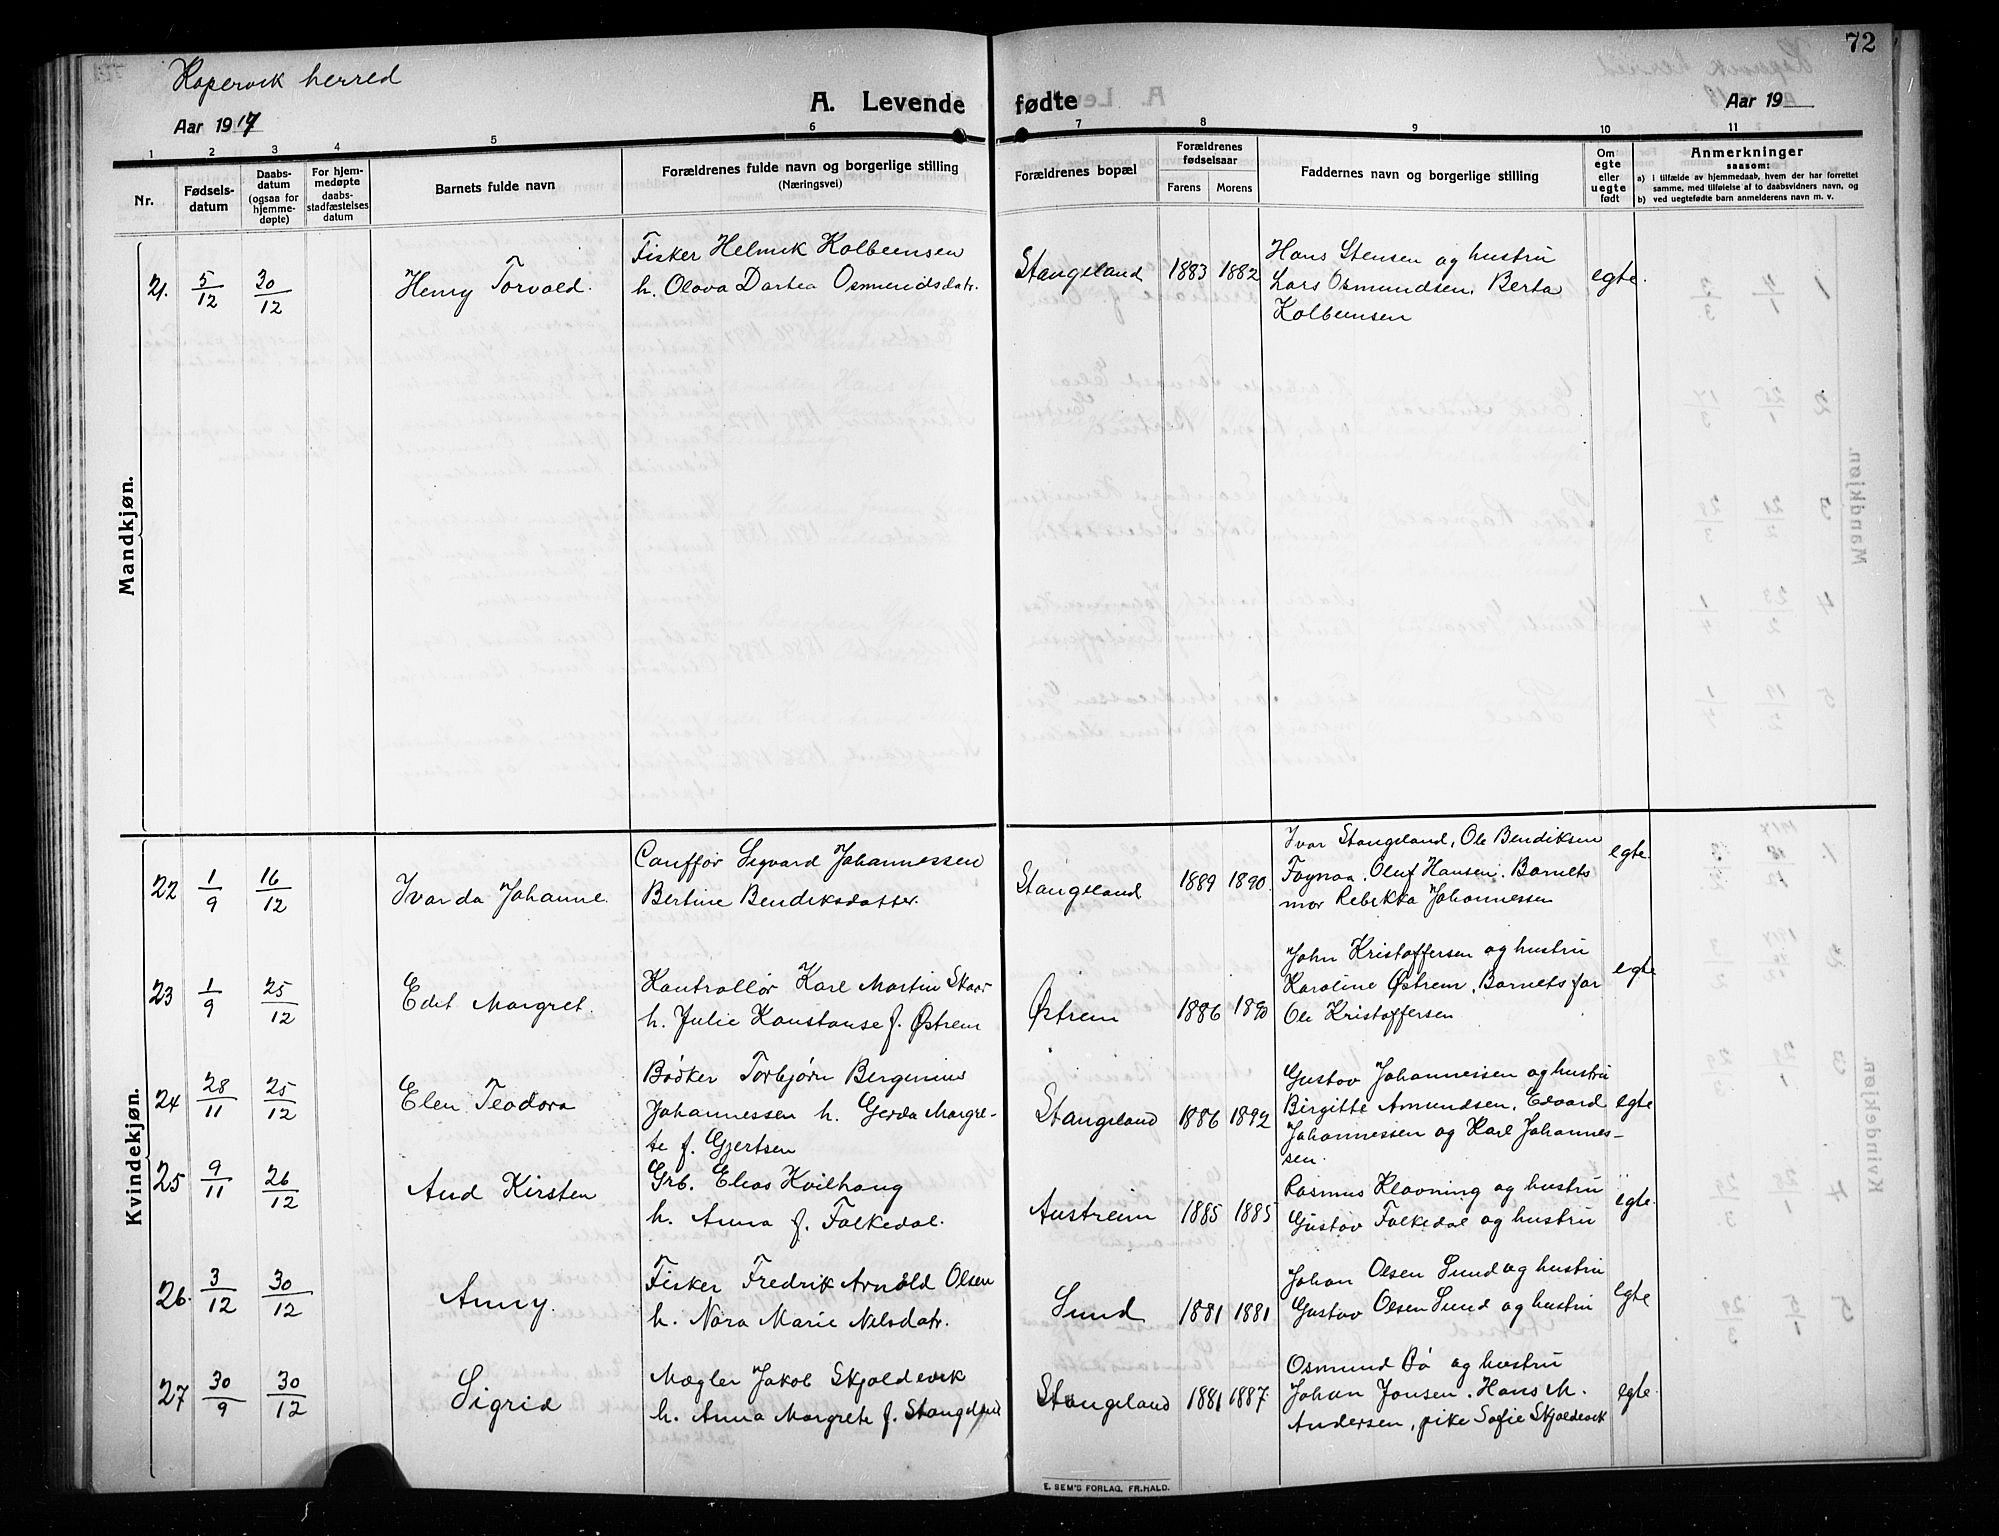 72
Kopervik herred
A. Levende fødte
Aar 1917
Aar 19
1 2 3 4 5 6 7 8 9 10 11
Nr.
Fødsels-
datum
Daabs-
datum
(ogsaa for
hjemme-
døpte)
For hjem-
medøpte
daabs-
stadfæstelses
datum
Barnets fulde navn
Forældrenes fulde navn og borgerlige stilling
(Næringsvei)
Forældrenes bopæl
Forældrenes
fødselsaar
Farens Morens
Faddernes navn og borgerlige stilling
Om
egte
eller
uegte
født
Anmerkninger
saasom:
a) i tilfælde av hjemmedaab, hvem der har forrettet
samme, med tilføielse af to daabsvidners navn, og
b) ved uegtefødte barn anmelderens navn m. v.
Mandkjøn.
21. 5/12 30/12 Henry Torvald.
Fisker Helmik Kolbeinsen
h. Olava Dortea Osmundsdatr.
Stangeland 1883 1882
Hans Stensen og hustru
Lars Osmundsen, Berta
Kolbeinsen
egte.
Kvindekjøn.
22 1/9 16/12 Ivarda Johanne.
Cauffør Sigvard Johannessen
Bertine Bendiksdatter.
Stangeland 1889 1890.
Ivar Stangeland, Ole Bendiksen
Fognaa, Oluf Hansen. Barnets
mor Rebekka Johannessen
egte.
23 1/9 25/12 Edit Margret.
Kontrollør Karl Martin Skaar
h. Julie Konstanse f. Østrem
Østrem 1886 1890
John Kristoffersen og hustru
Karoline Østrem, Barnets far
Ole Kristoffersen
egte
24 28/11 25/12 Elen Teodora
Bødker Torbjørn Bergenius
Johannessen h. Gerda Margre-
te f. Gjertsen
Stangeland 1886 1892
Gustav Johannessen og hustru
Birgitte Amundsen, Edvard
Johannessen og Karl Johannes-
sen.
egte
25 9/11 26/12 Aud Kirsten
Grb. Elias Kvilhaug
h. Anna f. Falkedal.
Austreim 1885 1885
Rasmus Klovning og hustru
Gustav Falkedal og hustru
egte.
26. 3/12 30/12 Anny.
Fisker Fredrik Arnold Olsen
h. Nora Marie Nilsdatr.
Sund 1881 1881
Johan Olsen Sund og hustru
Gustav Olsen Sund og hustru
egte
27 30/9 30/12 Sigrid
Mægler Jakob Skjoldevik
h. Anna Margrete f. Stangeland
Stangeland 1881 1887.
Osmund Bø og hustru
Johan Jonsen. Hans M.
Andersen, pike Sofie Skjoldevik
egte.
E. SEM'S FORLAG, FR.HALD.